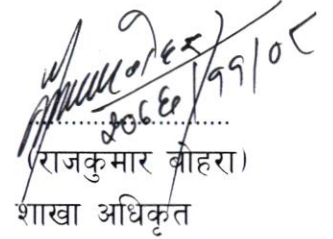 २०६६/११/०८
(राजकुमार बोहरा)
शाखा अधिकृत